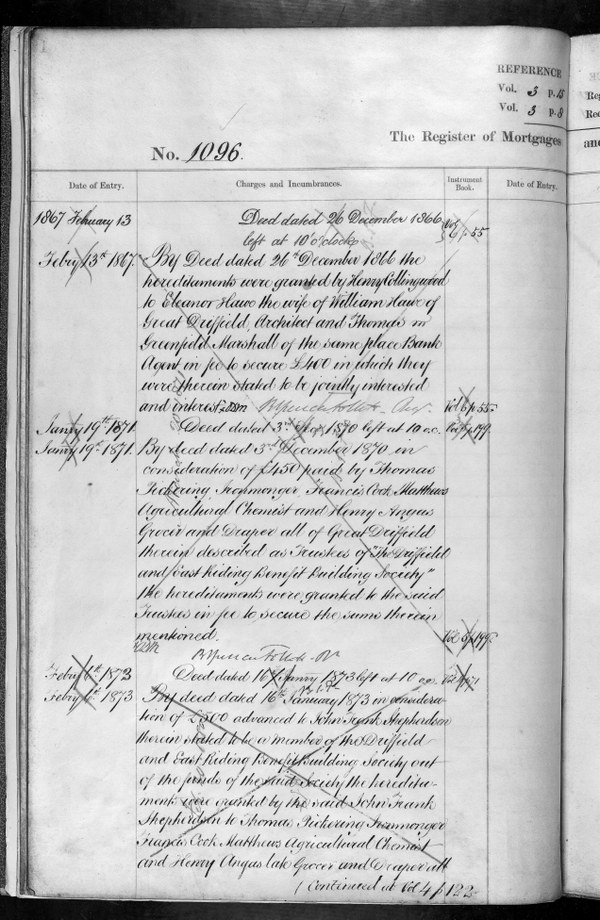 REFERENCE
Vol. 3 p. 15
Vol. 3 p. 8
The Register of Mortgages
No. 1096.
Date of Entry.
Charges and Incumbrances.
Instrument Book.
Date of Entry.
1867 February 13
Deed dated 26 December 1866
Vol
left at 10 o'clock
6 p 55
Febry 13th 1867.
By Deed dated 26th December 1866 the
hereditaments were granted by Henry Collingwood
to Eleanor Hawe the wife of William Hawe of
Great Driffield, Architect and Thomas
Greenfield Marshall of the same place Bank
Agent in fee to secure £400 in which they
were therein stated to be jointly interested
and interest.
Vol 6 p 55.
Janry 19th 1871.
Deed dated 3rd 1870 left at 10 o.c.
p 149
Janry 19th 1871.
By deed dated 3rd December 1870 in
consideration of £450 paid by Thomas
Pickering, Ironmonger, Francis Cook Matthews
Agricultural Chemist and Henry Angas
Grocer and Draper all of Great Driffield
therein described as Trustees of "The Driffield
and East Riding Benefit Building Society"
the hereditaments were granted to the said
Trustees in fee to secure the sums therein
mentioned.
Vol p 149.
Febry 1st 1873
Deed dated 16 Janry 1873 left at 10 o.c.
Febry 1st 1873
By deed dated 16th January 1873 in considera-
tion of £500 advanced to John Frank Shepherdson
therein stated to be a member of the Driffield
and East Riding Benefit Building Society out
of the funds of the said Society the heredita-
ments were granted by the said John Frank
Shepherdson to Thomas Pickering Ironmonger
Francis Cook Matthews Agricultural Chemist
and Henry Angas late Grocer and Draper all
(Continued at Vol 4 p 122